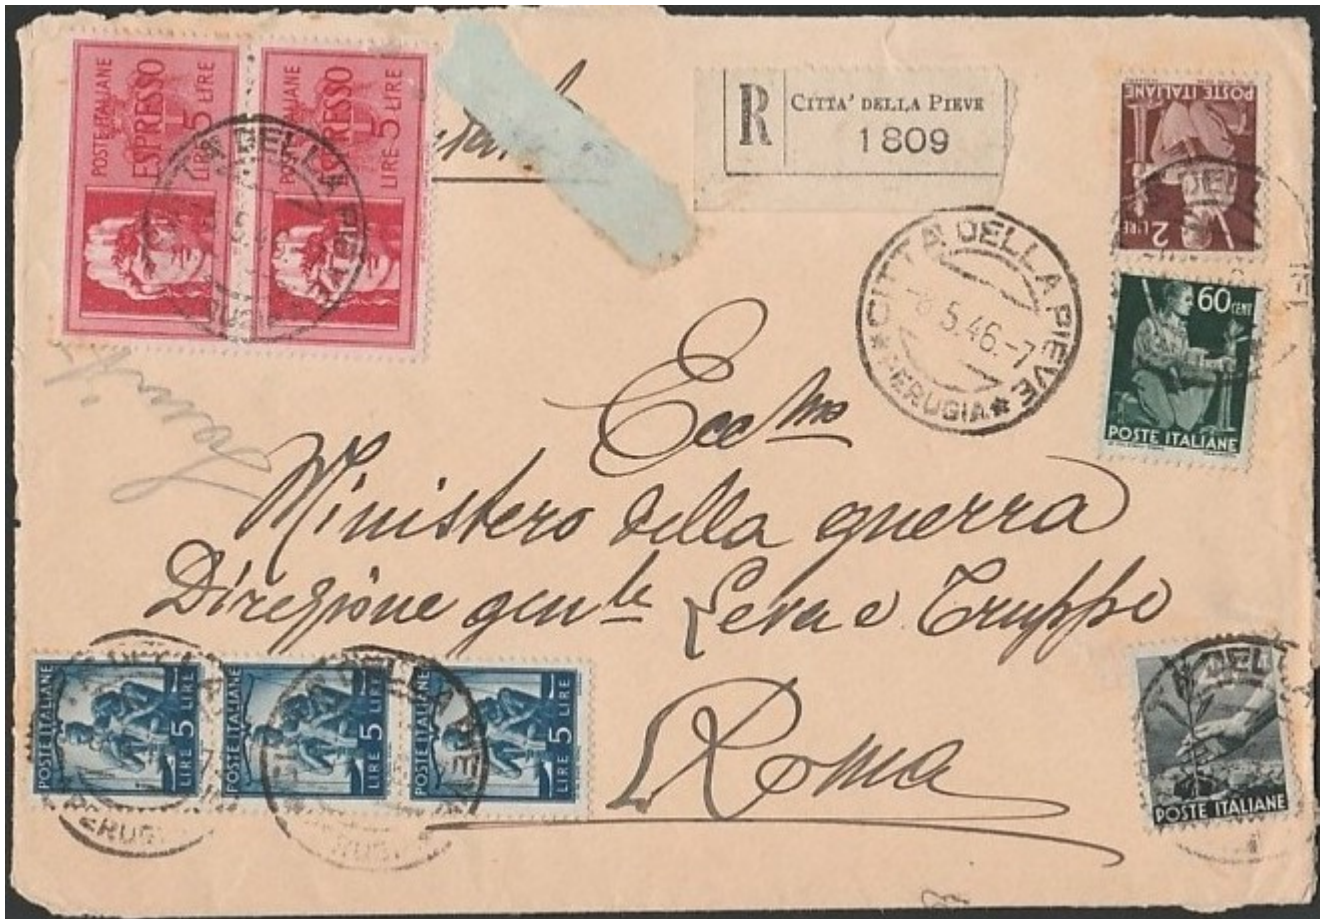 POSTE ITALIANE
ESPRESSO
LIRE 5 LIRE
POSTE ITALIANE
ESPRESSO
LIRE 5 LIRE
R CITTA' DELLA PIEVE
1809
POSTE ITALIANE
2 LIRE
CITTA DELLA PIEVE
5.46.-7
* PERUGIA *
60 CENT
POSTE ITALIANE
Ecc mo
Ministero della guerra
Direzione gen le Leva e Truppe
Roma
POSTE ITALIANE
LIRE 5 LIRE
POSTE ITALIANE
LIRE 5 LIRE
POSTE ITALIANE
LIRE 5 LIRE
POSTE ITALIANE